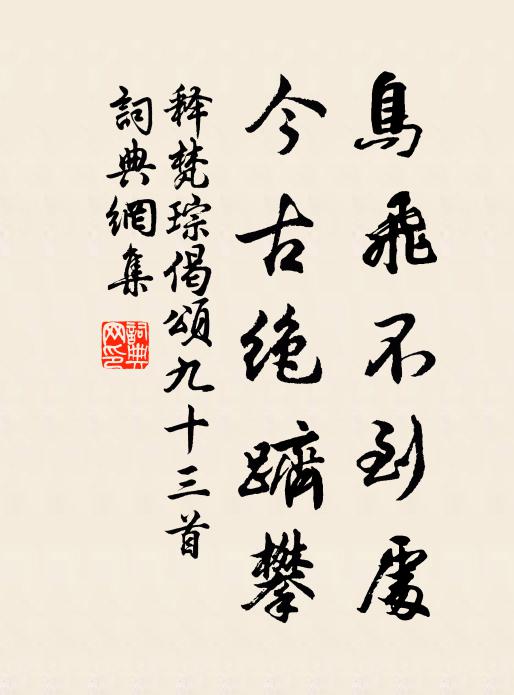 鳥飛不到處
今古絶躋攀
释梵琮偈頌九十三首
詞典網集
詞典
网印